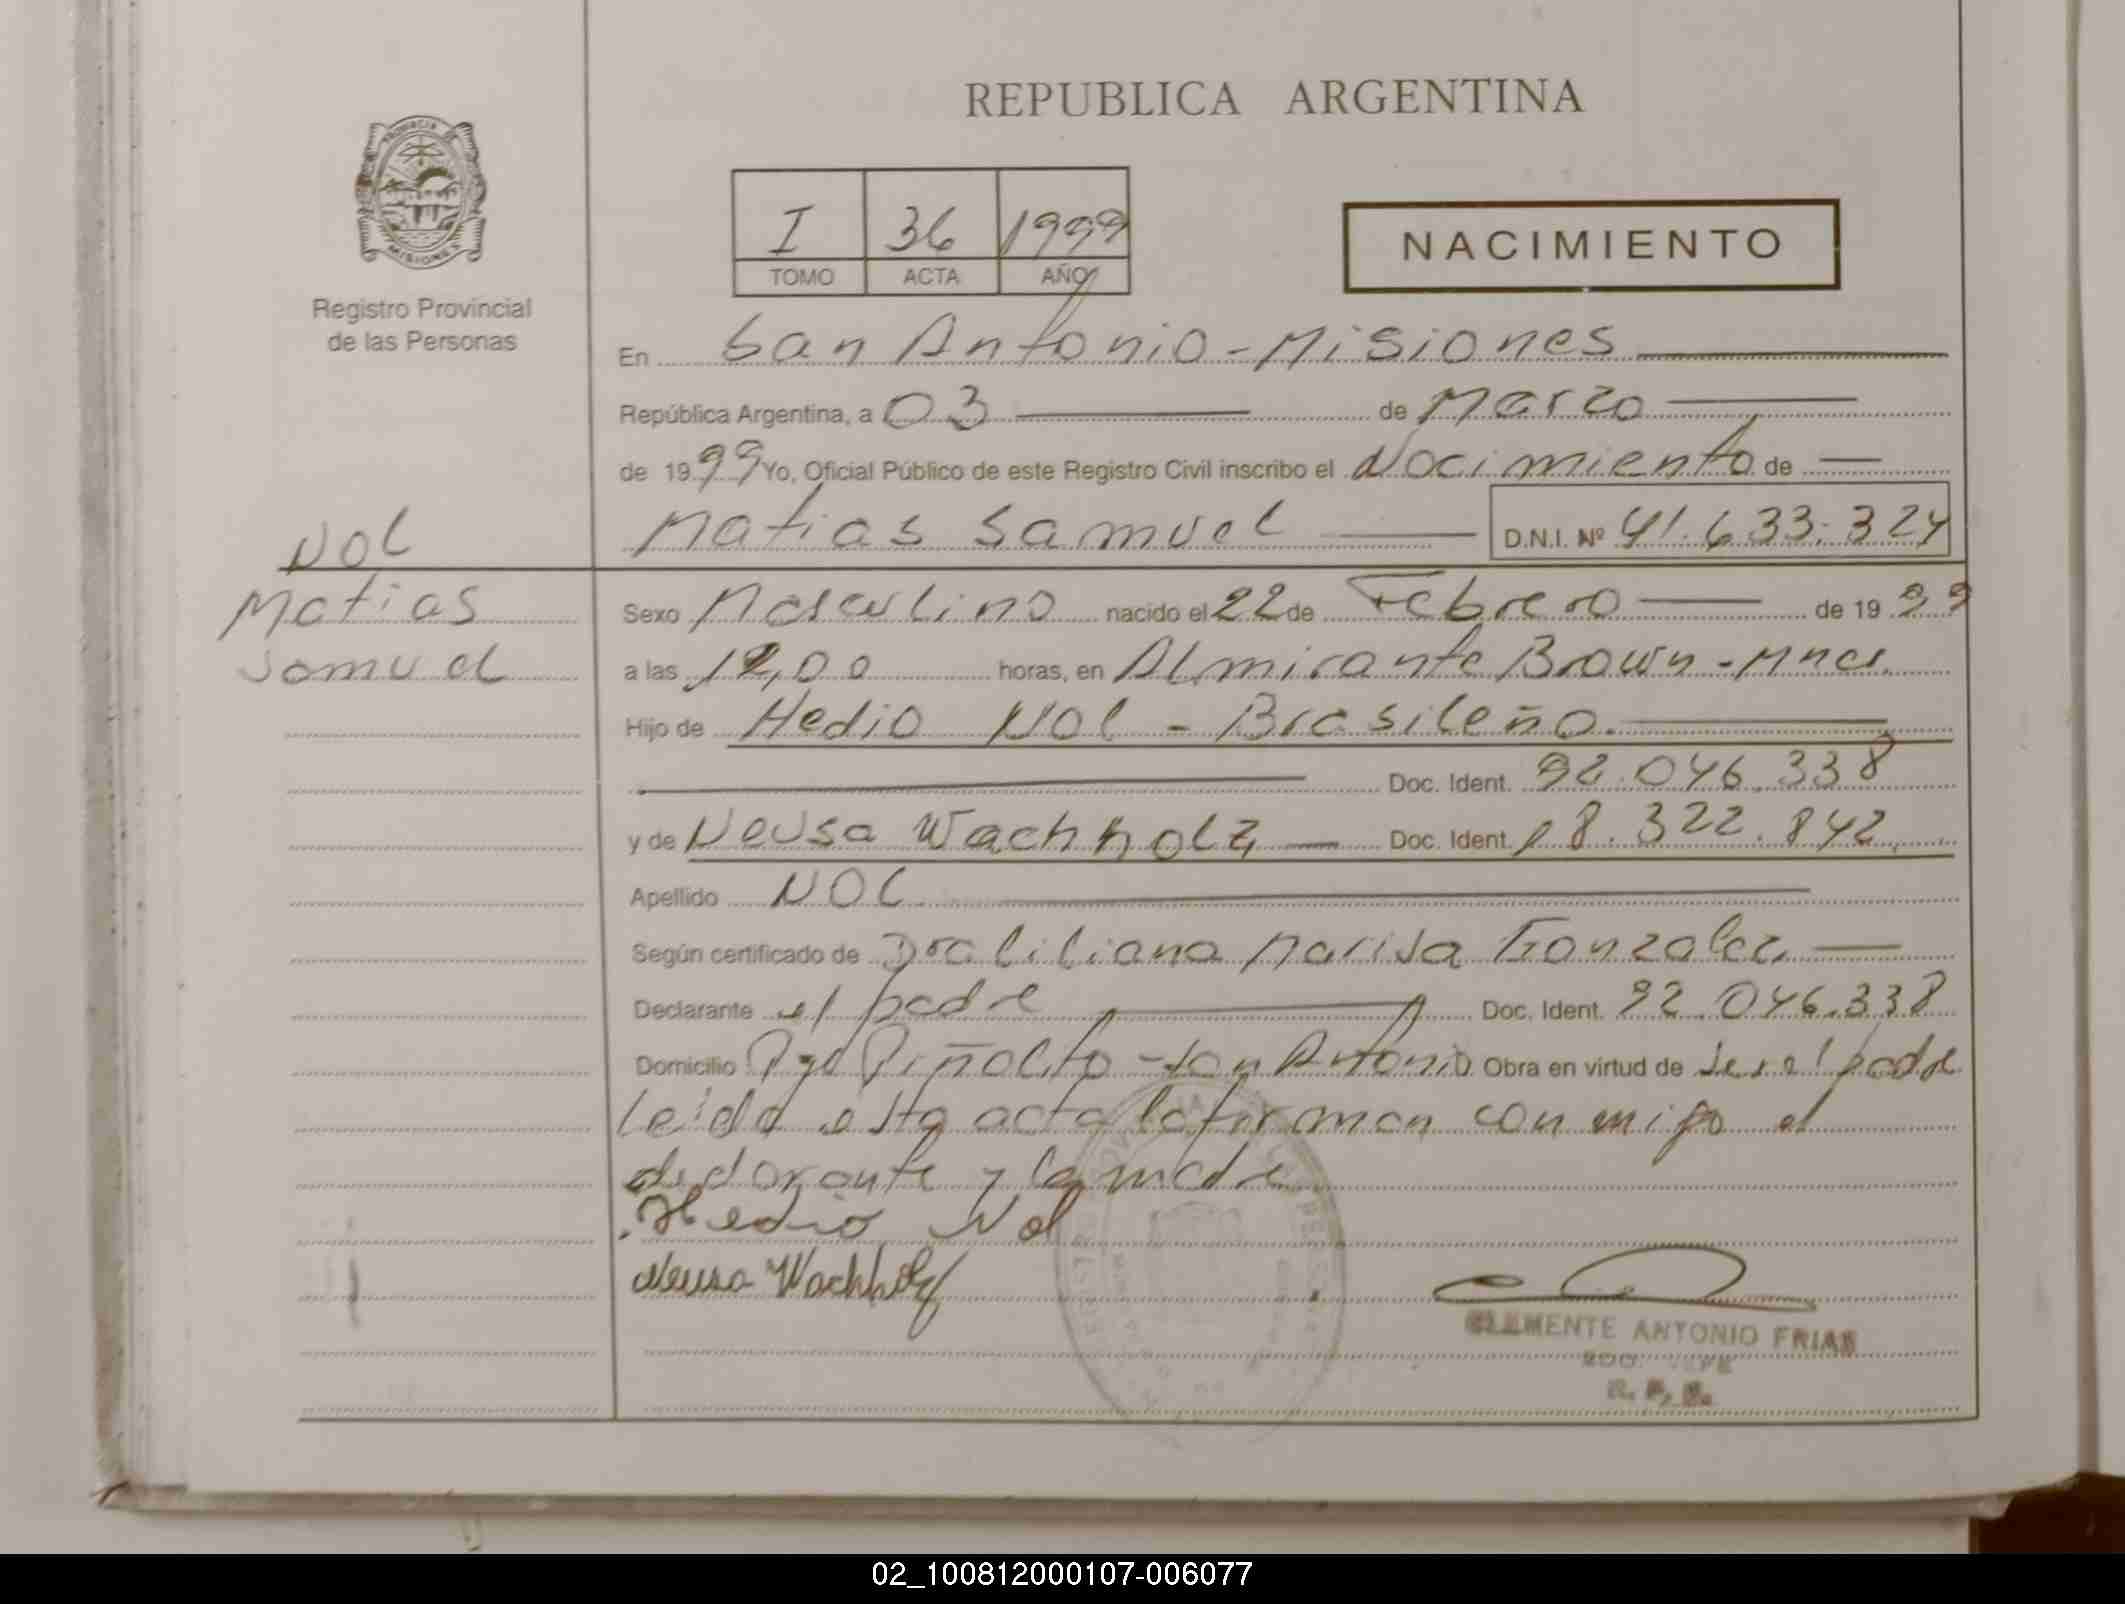 REPUBLICA ARGENTINA
PROVINCIA DE MISIONES
Registro Provincial
de las Personas
I 36 1999
TOMO ACTA AÑO
NACIMIENTO
En San Antonio - Misiones
República Argentina, a 03 de Marzo
de 1999 Yo, Oficial Público de este Registro Civil inscribo el Nacimiento de
Matias Samuel D.N.I. Nº 41.633.324
NOL
Matias
Samuel
Sexo Masculino nacido el 22 de Febrero de 1999
a las 12,00 horas, en Almirante Brown - Mnes.
Hijo de Hedio Nol - Brasileño.
Doc. Ident. 92.046.338
y de Neusa Wachholz Doc. Ident. 18.322.842
Apellido NOL
Según certificado de Dra Liliana Marisa Gonzalez
Declarante el padre Doc. Ident. 92.046.338
Domicilio Pje Piñalito - San Antonio Obra en virtud de ser el padre
Leida esta acta la firman conmigo el
declarante y la madre
Hedio Nol
Neusa Wachholz
CLEMENTE ANTONIO FRIAS
JEFE
02_100812000107-006077